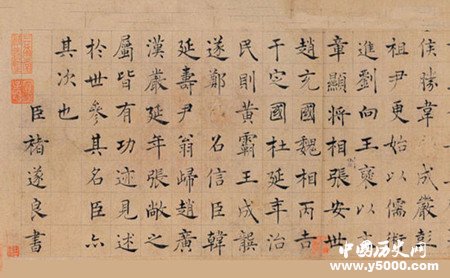 侯勝韋成嚴彭
祖尹更始以儒術
進劉向王襃以文
章顯將相張安世
趙充國魏相丙吉
于定國杜延年治
民則黃霸王成龔
遂鄭召信臣韓
延壽尹翁歸趙廣
漢嚴延年張敞之
屬皆有功迹見述
於世參其名臣亦
其次也
臣褚遂良書
中国历史网
www.y5000.com